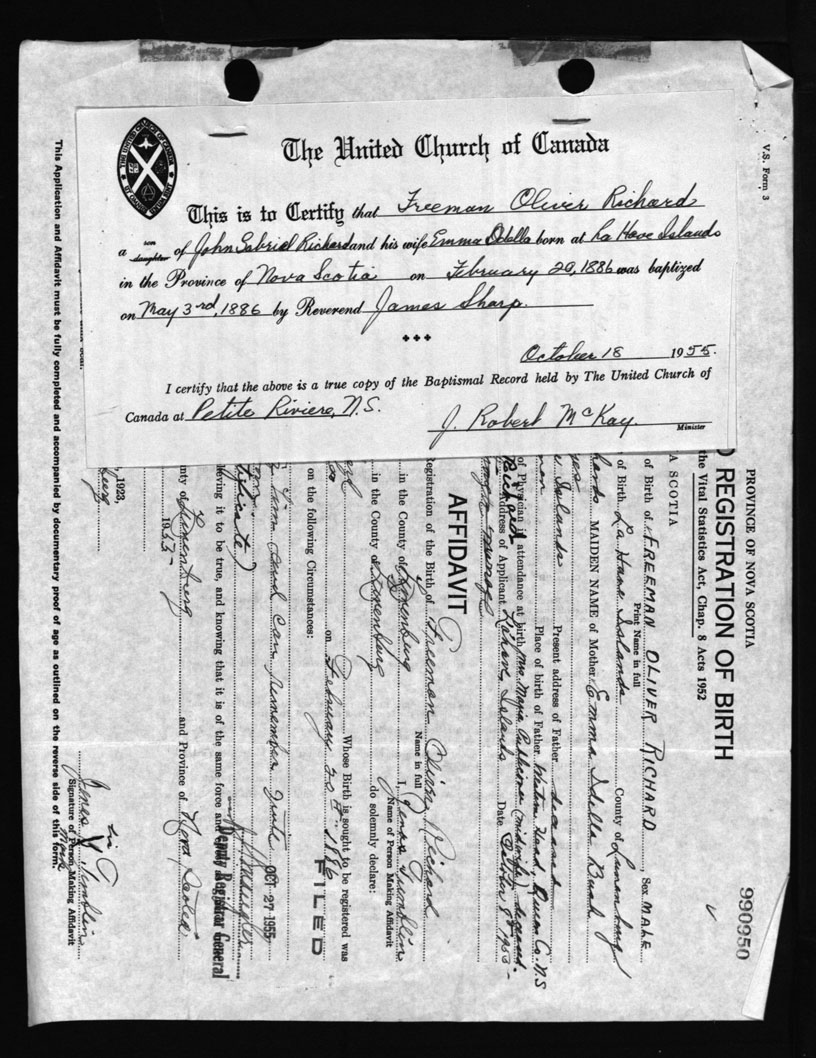 The United Church of Canada
This is to Certify that Freeman Oliver Richard
a son daughter of John Gabriel Richard and his wife Emma Odella born at La Have Islands
in the Province of Nova Scotia on February 20, 1886 was baptized
on May 3rd, 1886 by Reverend James Sharp.
October 18 1955.
I certify that the above is a true copy of the Baptismal Record held by The United Church of
Canada at Petite Riviere, N.S.
J. Robert McKay.
Minister
V.S. Form 3
990950
PROVINCE OF NOVA SCOTIA
REGISTRATION OF BIRTH
the Vital Statistics Act, Chap. 8 Acts 1952
A SCOTIA
of Birth of FREEMAN OLIVER RICHARD, Sex MALE
Print Name in full
of Birth La Have Islands County of Lunenburg
MAIDEN NAME of Mother Emma Idella Bush
Islands Present address of Father deceased
Place of birth of Father Western Head, Queens Co. N.S
of Physician in attendance at birth Mrs. Maria Publicover (midwife) deceased.
Richard Address of Applicant Lahave Islands Date October 8
AFFIDAVIT
Registration of the Birth of Freeman Oliver Richard
Name in full
in the County of Lunenburg I, James Tumblin
Name of Person Making Affidavit
in the County of Lunenburg do solemnly declare:
Whose Birth is sought to be registered was
on February 20th 1886
on the following Circumstances:
FILED
him and can remember
OCT 27 1955
tificate)
Deputy Registrar General
lieving it to be true, and knowing that it is of the same force and
nty of Lunenburg and Province of Nova Scotia
1953
, 1923,
his
James X Tumblin
mark
Signature of Person Making Affidavit
This Application and Affidavit must be fully completed and accompanied by documentary proof of age as outlined on the reverse side of this form.